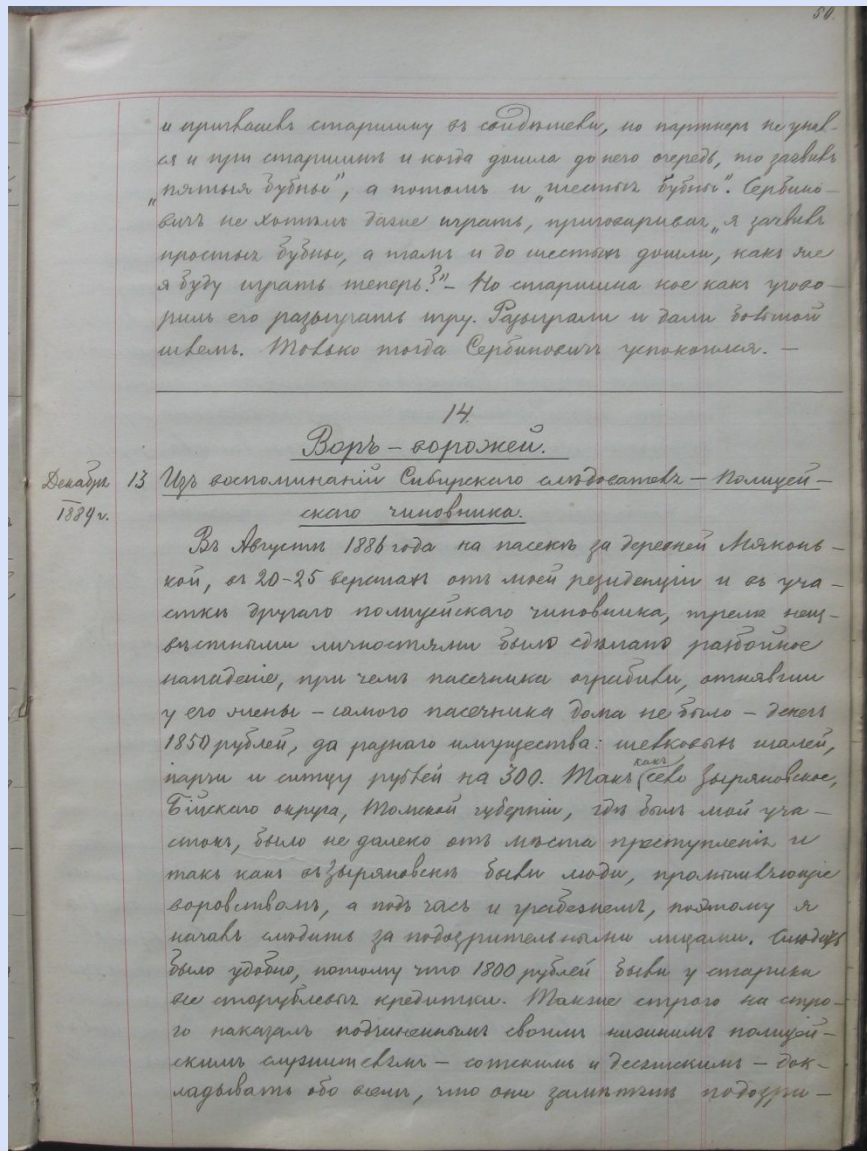 50.
и пригласилъ старшину въ свидѣтели, но партнеръ не унял-
ся и при старшинѣ и когда дошла до него очередь, то заявилъ
„пятыя бубны", а потомъ и „шестыя бубны". Сербино-
вичъ не хотѣлъ даже играть, приговаривая „я заявилъ
простыя бубны, а тамъ и до шестыхъ дошли, какъ же
я буду играть теперь?" – Но старшина кое какъ угово-
рилъ его разыграть игру. Разыграли и дали большой
шлемъ. Только тогда Сербиновичъ успокоился. –
14.
Воръ – ворожей.
Декабря 13 Изъ воспоминаній Сибирскаго слѣдователя – полицей-
1889 г. скаго чиновника.
Въ Августѣ 1886 года на пасекѣ за деревней Мяконь-
кой, въ 20-25 верстахъ отъ моей резиденціи и въ уча-
сткѣ другаго полицейскаго чиновника, тремя неиз-
вѣстными личностями было сдѣлано разбойное
нападеніе, при чемъ пасечника ограбили, отнявши
у его жены – самого пасечника дома не было – денегъ
1850 рублей, да разнаго имущества: шелковыхъ шалей,
парчи и ситцу рублей на 300. Такъ какъ село Зыряновское,
Бійскаго округа, Томской губерніи, гдѣ былъ мой уча-
стокъ, было не далеко отъ мѣста преступленія и
такъ какъ въ Зыряновскѣ были люди, промышляющіе
воровствомъ, а подъ часъ и грабежемъ, поэтому я
началъ слѣдить за подозрительными лицами. Слѣдить
было удобно, потому что 1800 рублей были у старика
все сторублевыя кредитки. Также строго на стро-
го наказалъ подчиненнымъ своимъ нижнимъ полицей-
скимъ служителямъ – сотскимъ и десятскимъ – док-
ладывать обо всемъ, что они замѣтятъ подозри-